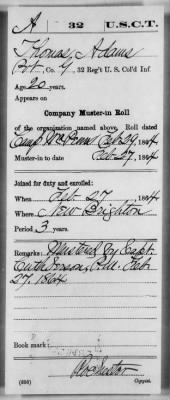 A 32 U.S.C.T.
Thomas Adams
Pvt., Co. G, 32 Reg't U. S. Col'd Inf.
Age 20 years.
Appears on
Company Muster-in Roll
of the organization named above. Roll dated
Camp Wm Penn Feb 29, 1864.
Muster-in to date Feb 27, 1864
Joined for duty and enrolled:
When Feb. 27, 1864
Where New Brighton
Period 3 years.
Remarks: Mustered by Capt.
P.M. Feb.
27. 1864
Book mark:
(356) Copyist.